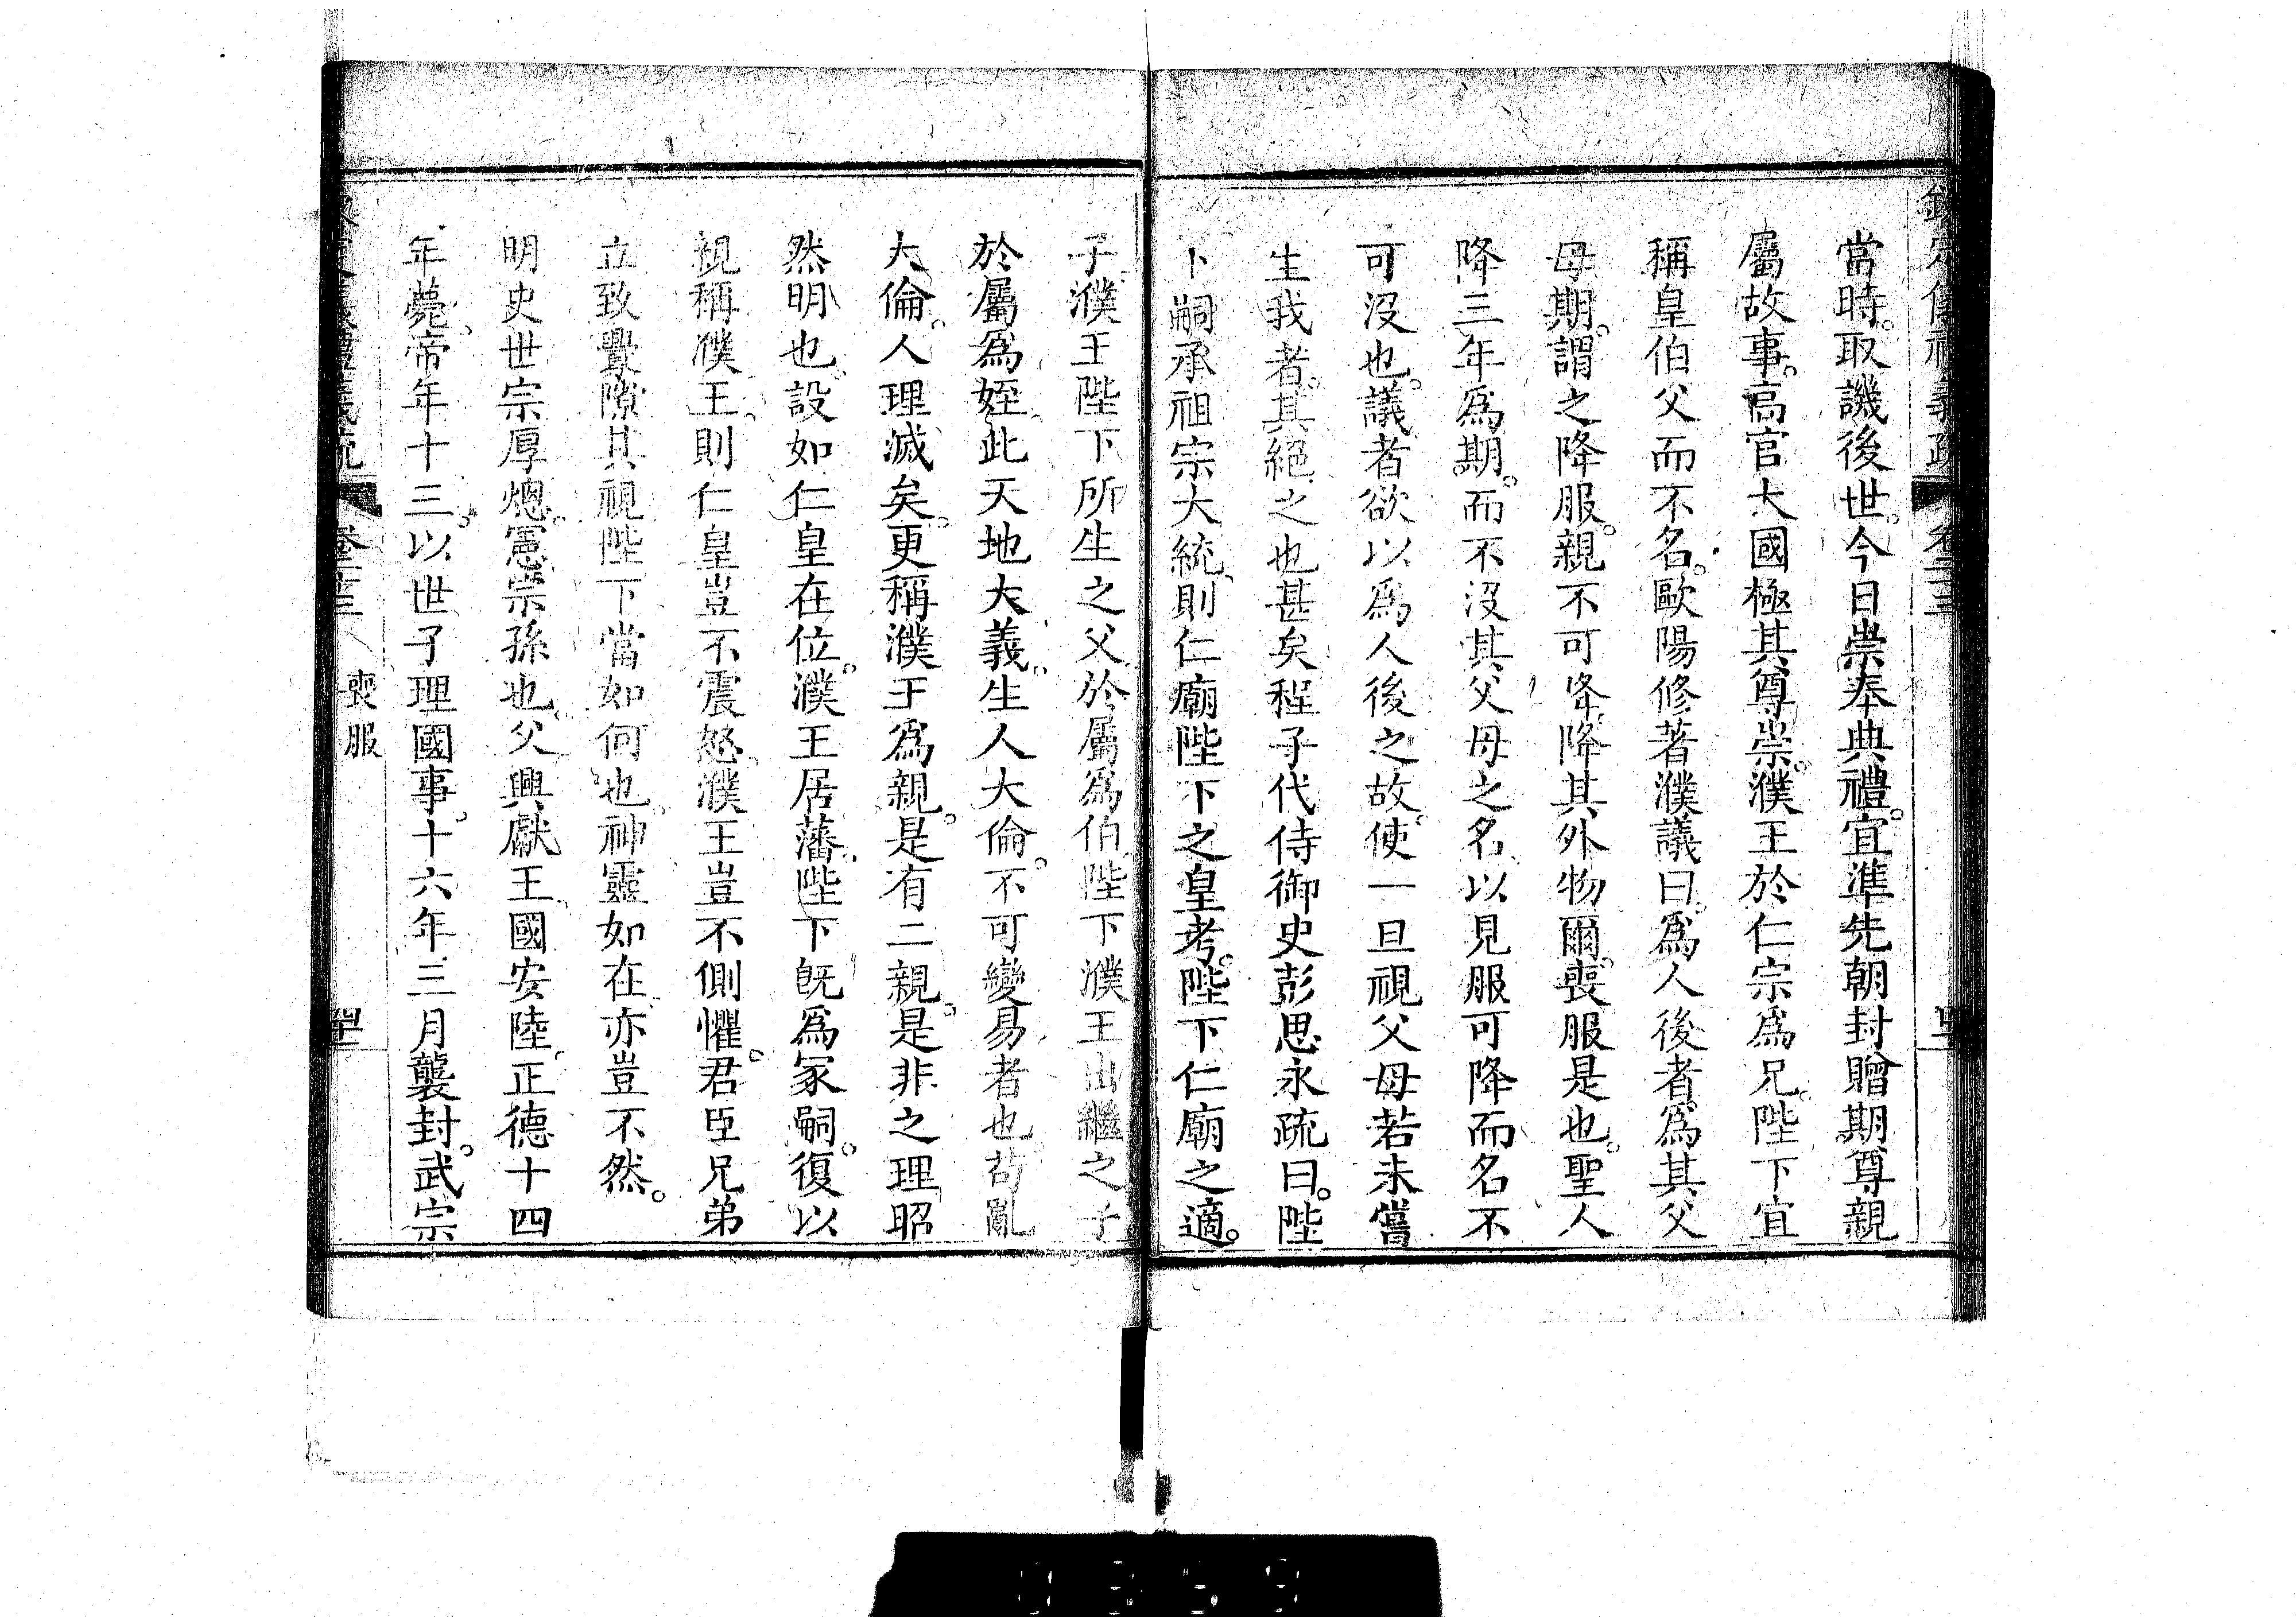 當時。取譏後世。今日崇奉典禮。宜準先朝封贈期尊親
屬故事。高官大國極其尊崇。濮王於仁宗爲兄。陛下宜
稱皇伯父而不名。歐陽修著濮議曰。爲人後者。爲其父
母期。謂之降服。親不可降。降其外物爾。喪服是也。聖人
降三年爲期。而不沒其父母之名。以見服可降而名不
可沒也。議者欲以爲人後之故。使一旦視父母若未嘗
生我者。其絕之也甚矣。程子代侍御史彭思永疏曰。陛
下嗣承祖宗大統。則仁廟陛下之皇考。陛下仁廟之適。
子。濮王陛下所生之父。於屬爲伯。陛下濮王出繼之子。
於屬爲姪。此天地大義。生人大倫。不可變易者也。苟亂
大倫。人理滅矣。更稱濮王爲親。是有二親。是非之理昭
然明也。設如仁皇在位。濮王居藩。陛下既爲冢嗣。復以
親稱濮王。則仁皇豈不震怒。濮王豈不側懼。君臣兄弟
立致釁隙。其視陛下當如何也。神靈如在。亦豈不然。
明史世宗厚熜。憲宗孫也。父興獻王。國安陸。正德十四
年薨。帝年十三。以世子理國事。十六年三月襲封。武宗
喪服